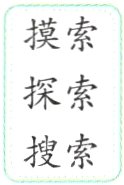 摸索
探索
搜索